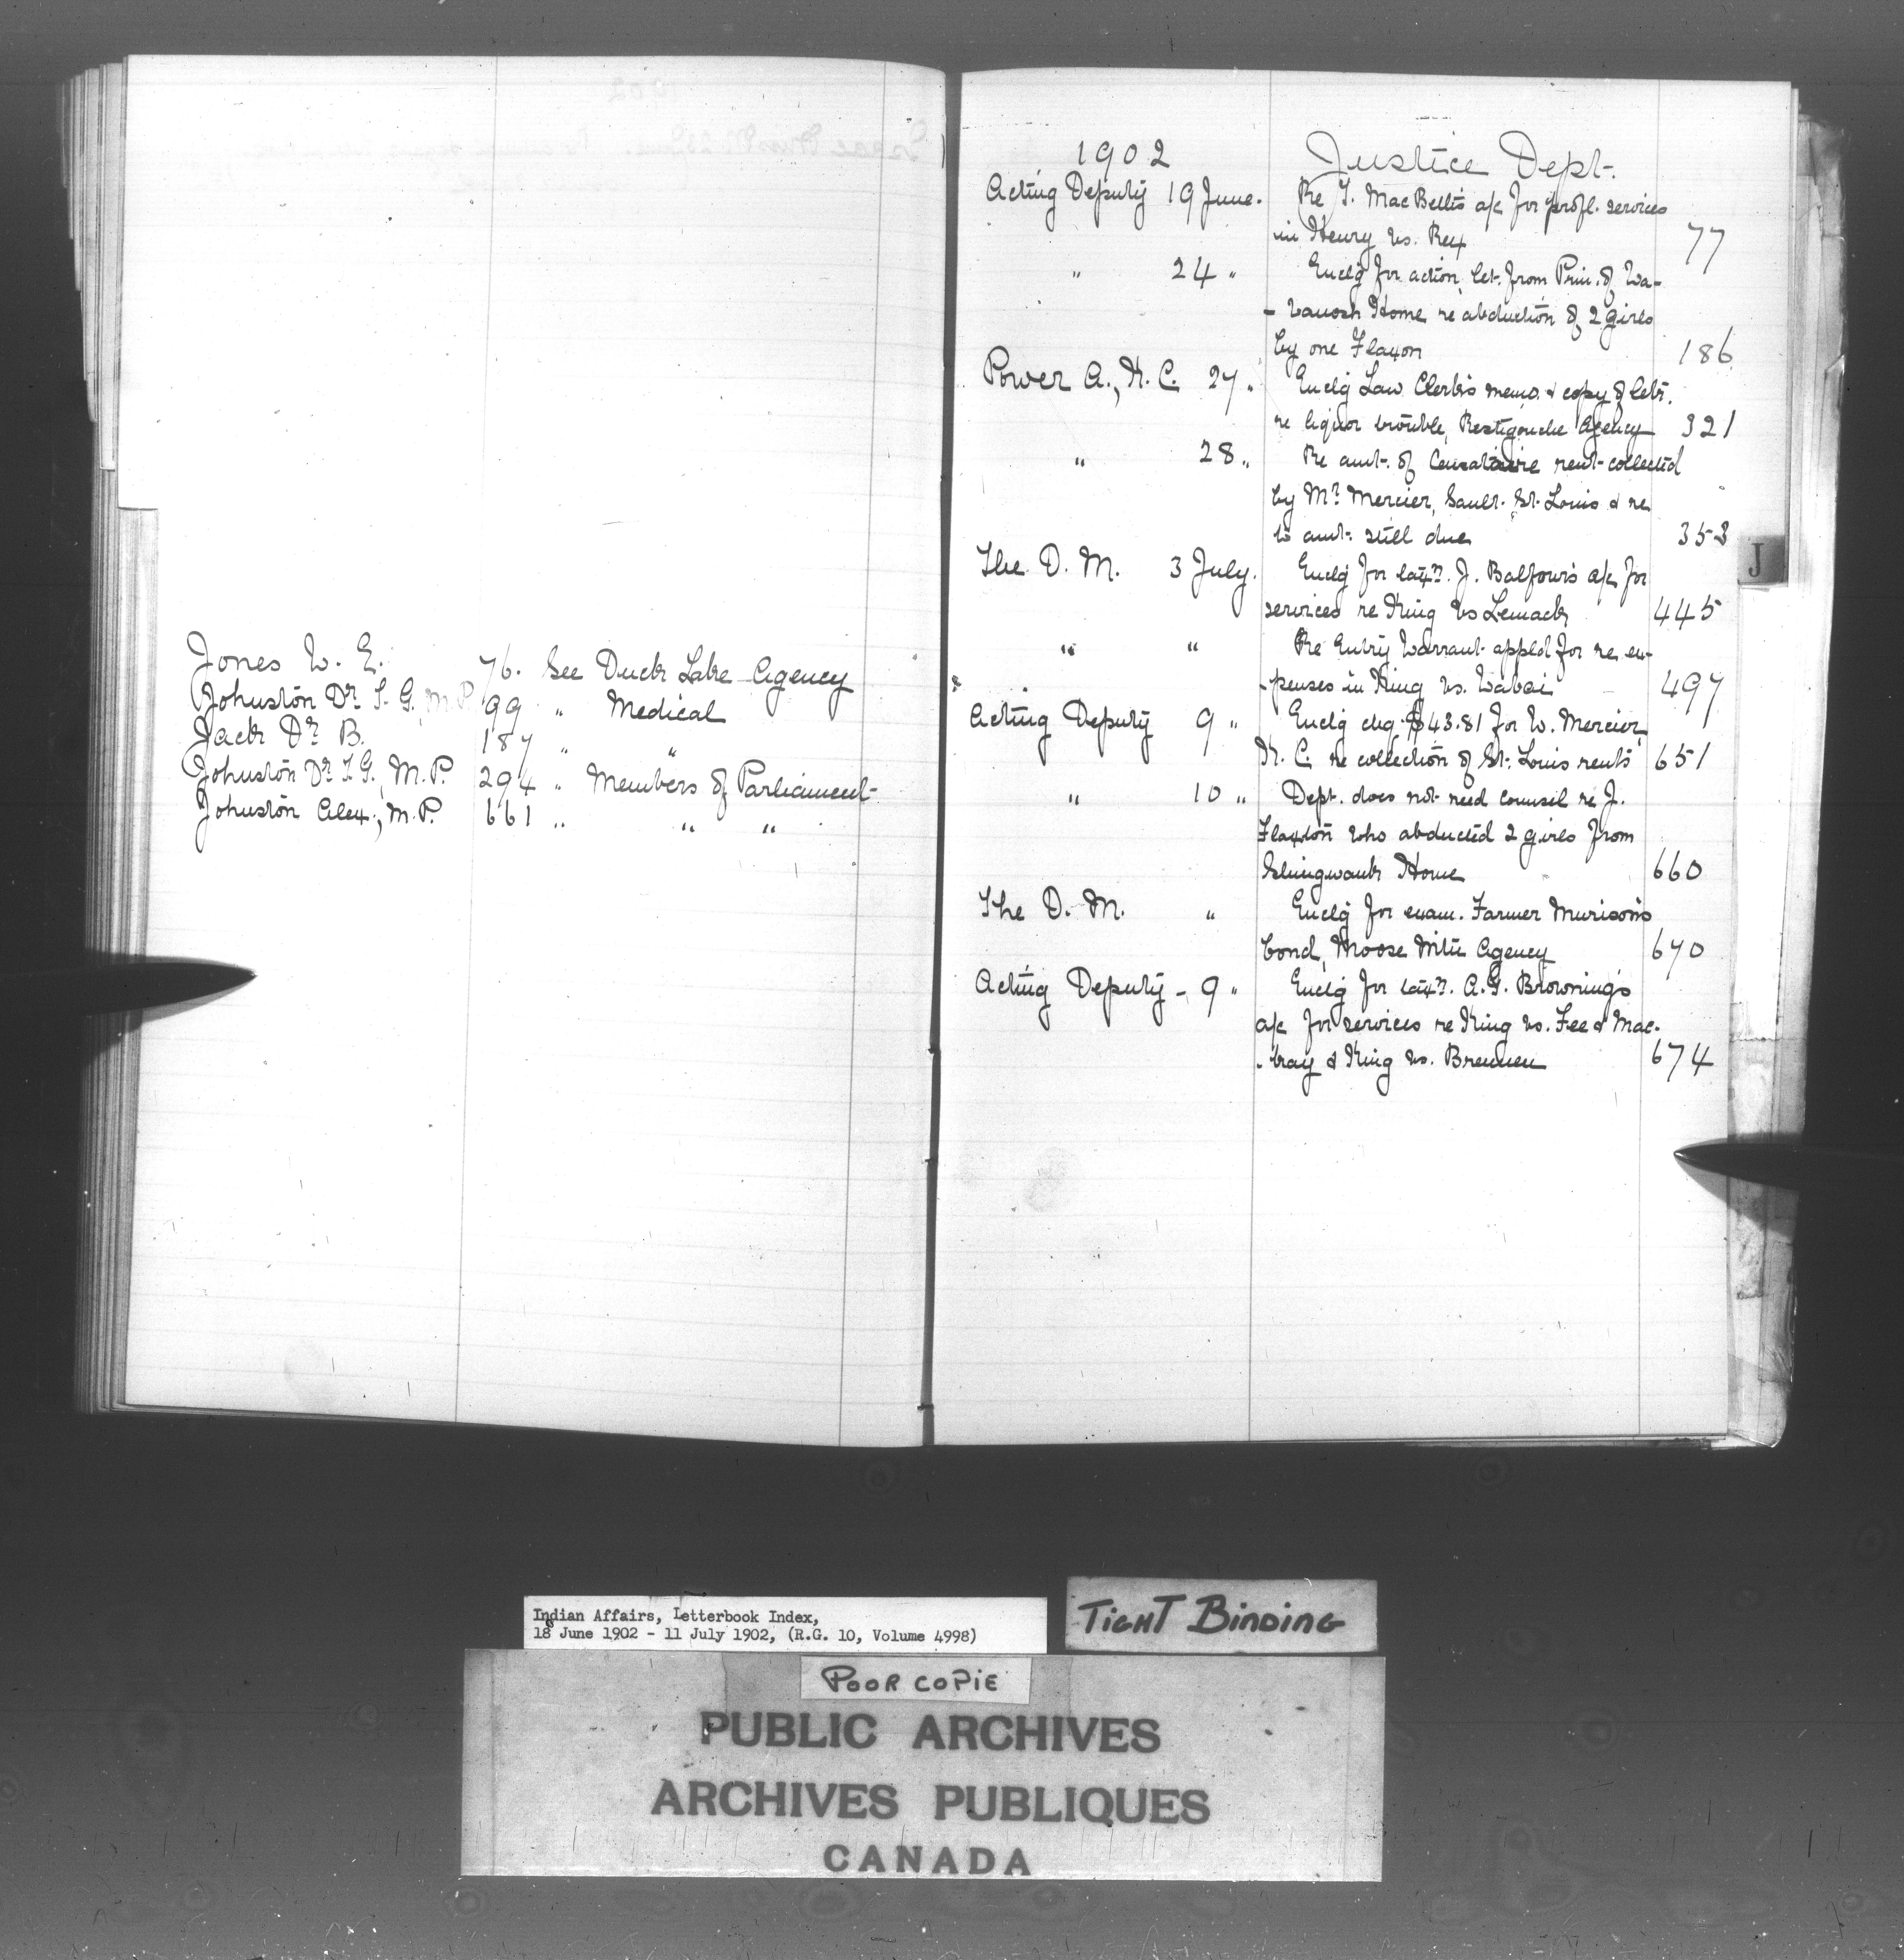 Jones W. E. 76. See Duck Lake Agency
Johnston Dr T. G., M.P. 99 " Medical
Jack Dr B. 187 " "
Johnston Dr T. G., M.P. 294 " Members of Parliament
Johnston Alex., M.P. 661 " " "
1902 Justice Dept.
Acting Deputy 19 June. Re T. MacBeth's a/c for profl. services
in Henry vs. Rex 77
" 24 " Enclg for action, let. from Prin. of Wa-
- wanosh Home re abduction of 2 girls
by one Flaxon 186
Power A., K. C. 27 " Enclg Law Clerk's memo. & copy of letr.
re liquor trouble, Restigouche Agency 321
" 28 " Re amt. of Censataire rent collected
by Mr. Mercier, Sault St. Louis & re
to amt. still due 353
The D. M. 3 July. Enclg for taxn. J. Balfour's a/c for
services re King vs 445
" " Re entry Warrant appled for re ex-
- penses in King vs. 497
Acting Deputy 9 " Enclg chq. $43.81 for W. Mercier,
K. C. re collection of St. Louis rents 651
" 10 " Dept. does not need counsel re J.
Flaxton who abducted 2 girls from
Shingwauk Home 660
The D. M. " Enclg for exam. Farmer Murison's
bond, Moose Mtn Agency 670
Acting Deputy - 9 " Enclg for taxn. A. G. Browning's
a/c for services re King vs. Fee & Mac-
- tray & King vs. Brennen 674
J
Indian Affairs, Letterbook Index,
18 June 1902 - 11 July 1902, (R.G. 10, Volume 4998)
TIGHT BINDING
POOR COPIE
PUBLIC ARCHIVES
ARCHIVES PUBLIQUES
CANADA